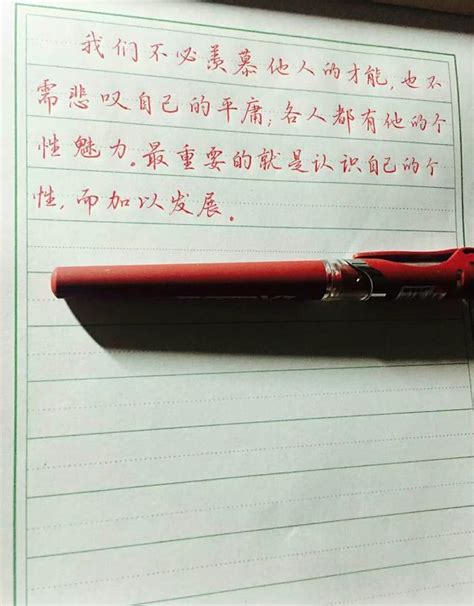 我们不必羡慕他人的才能,也不
需悲叹自己的平庸;各人都有他的个
性魅力。最重要的就是认识自己的个
性,而加以发展。